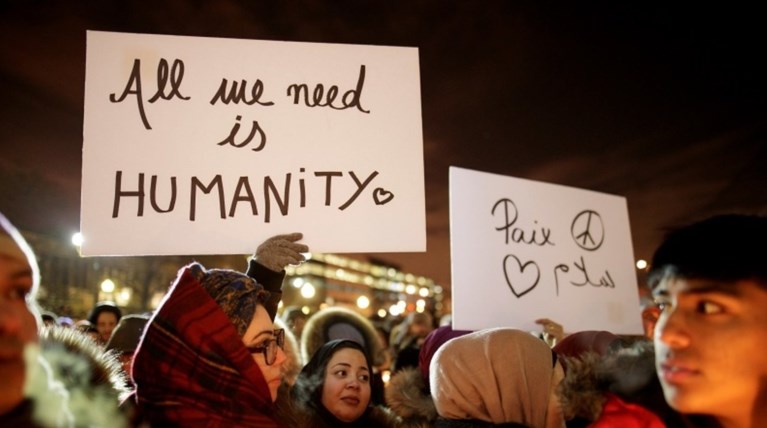 All we need
is
HUMANITY
Paix
سلام